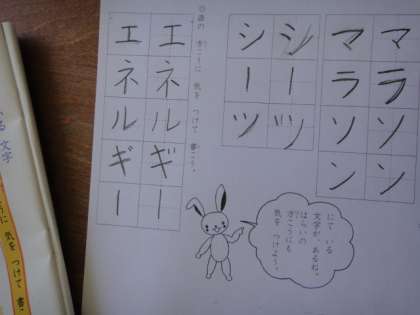 マラソン
マラソン
シーツ
シーツ
方こうに 気を つけて 書こう。
エネルギー
エネルギー
にて いる
文字が、あるね。
はらいの
方こうにも
気を つけよう。
る 文字
に 気を つけて 書